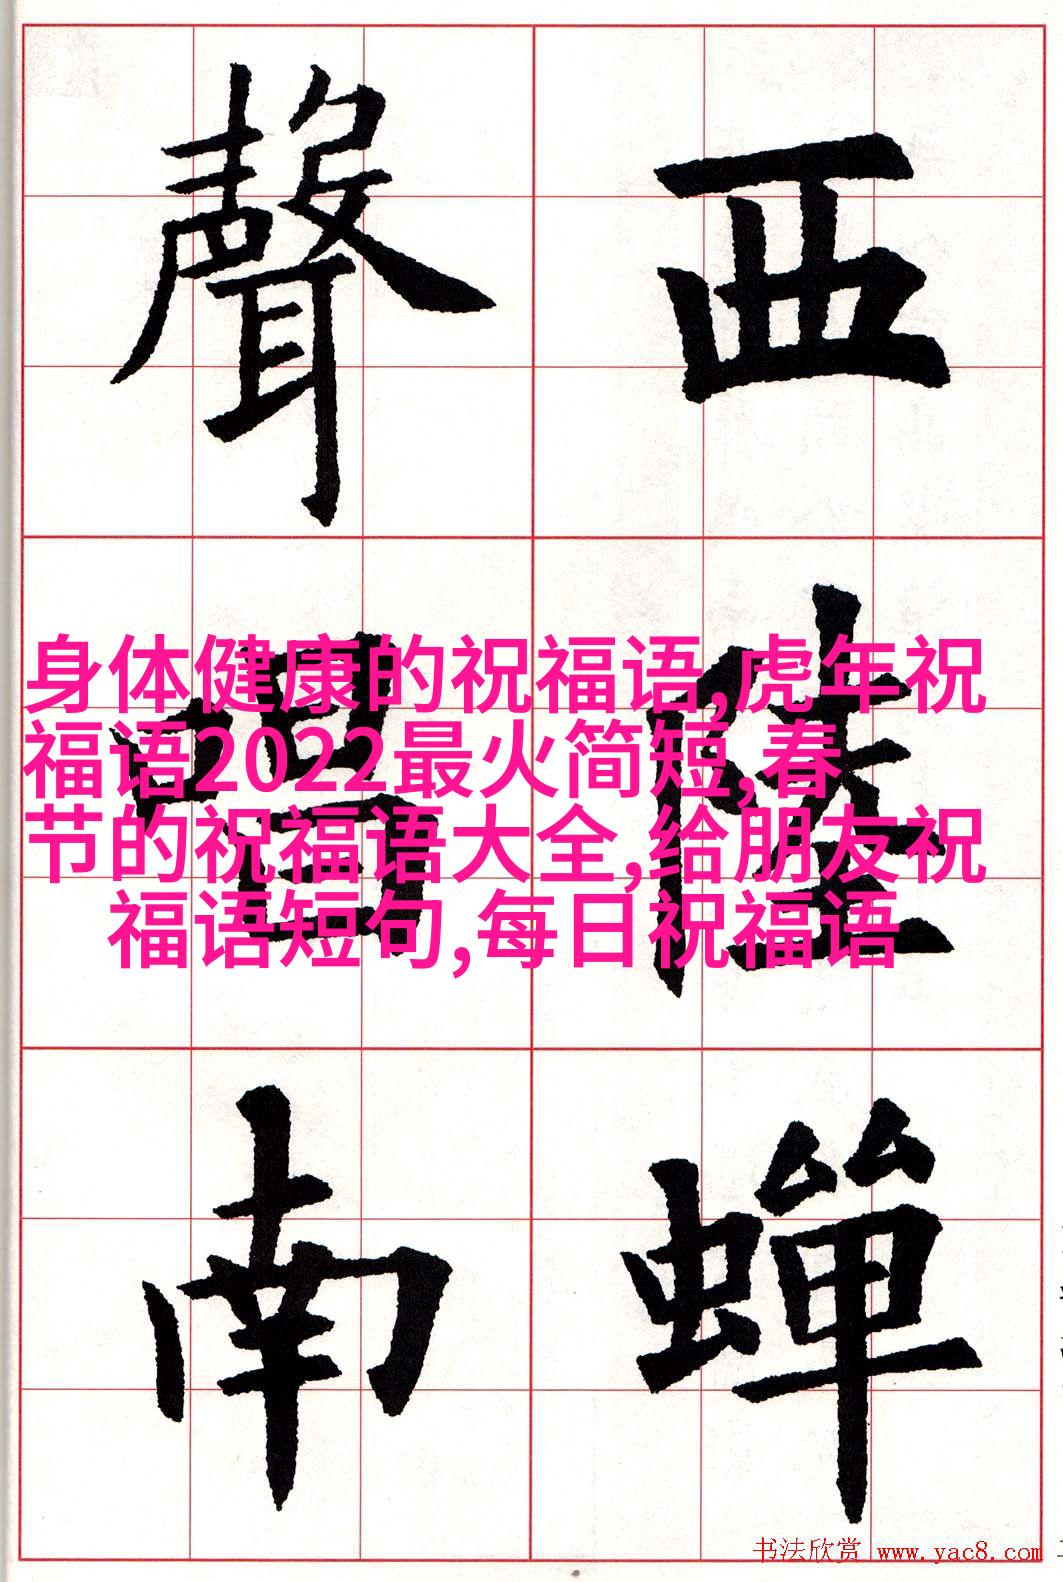 西陸蟬
聲唱南
身体健康的祝福语,虎年祝
福语2022最火简短,春
节的祝福语大全,给朋友祝
福语短句,每日祝福语
书法欣赏 www.yac8.com